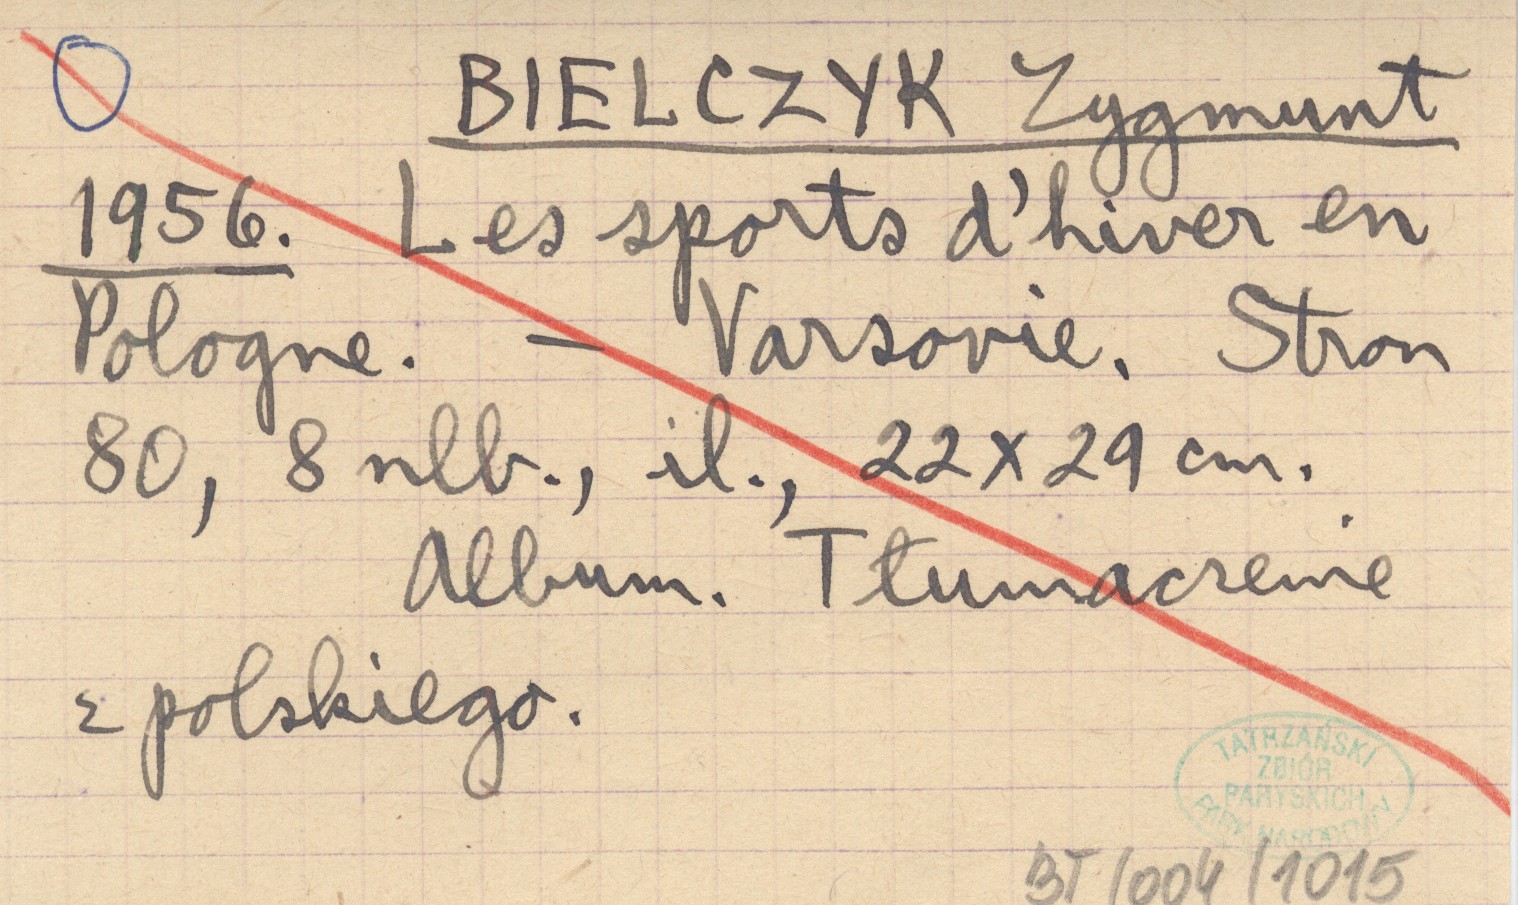 BIELCZYK Zygmunt
1956. Les sports d'hiver en
Pologne. — Varsovie. Stron
80, 8 nlb., il., 22x29 cm.
Album. Tłumaczenie
z polskiego.
TATRZAŃSKI
ZBIÓR
PARYSKICH
PARK NARODOWY
BT/004/1015